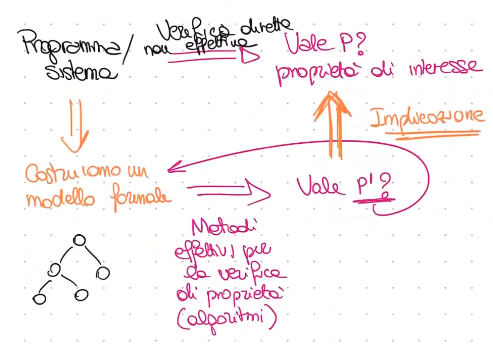 Programma/
sistema
Verifica diretta
non effettiva
Vale P?
proprietà di interesse
Implicazione
Costruiamo un
modello formale
Vale P'?
Metodi
effettivi per
la verifica
di proprietà
(algoritmi)